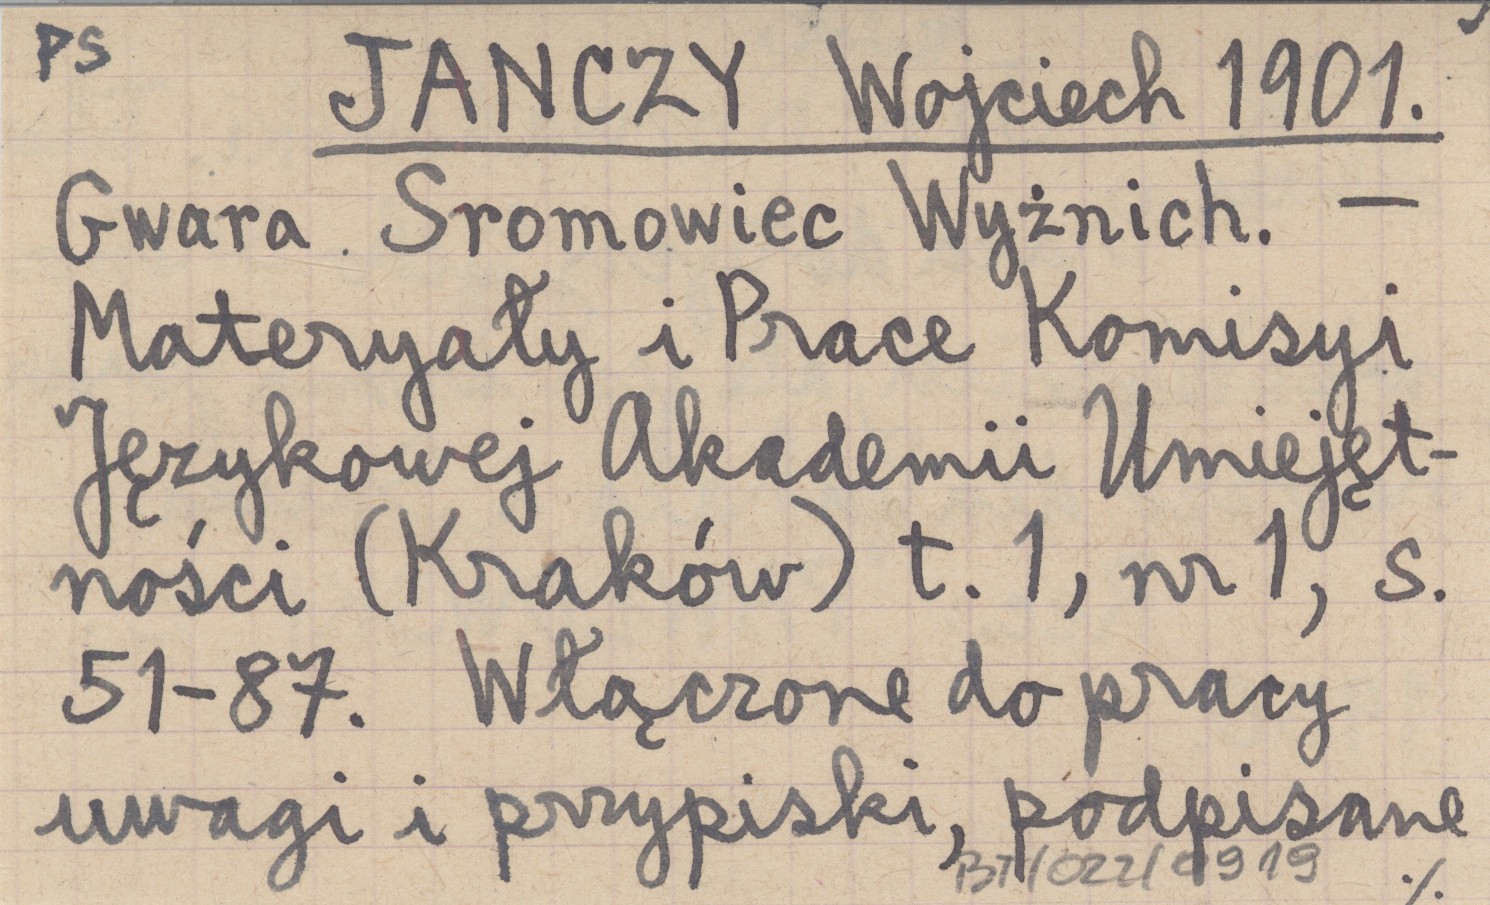 PS
JANCZY Wojciech 1901.
Gwara Sromowiec Wyżnich. —
Materyały i Prace Komisyi
Językowej Akademii Umiejęt-
ności (Kraków) t. 1, nr 1, s.
51-87. Włączone do pracy
uwagi i przypiski, podpisane
BT/022/0919
./.